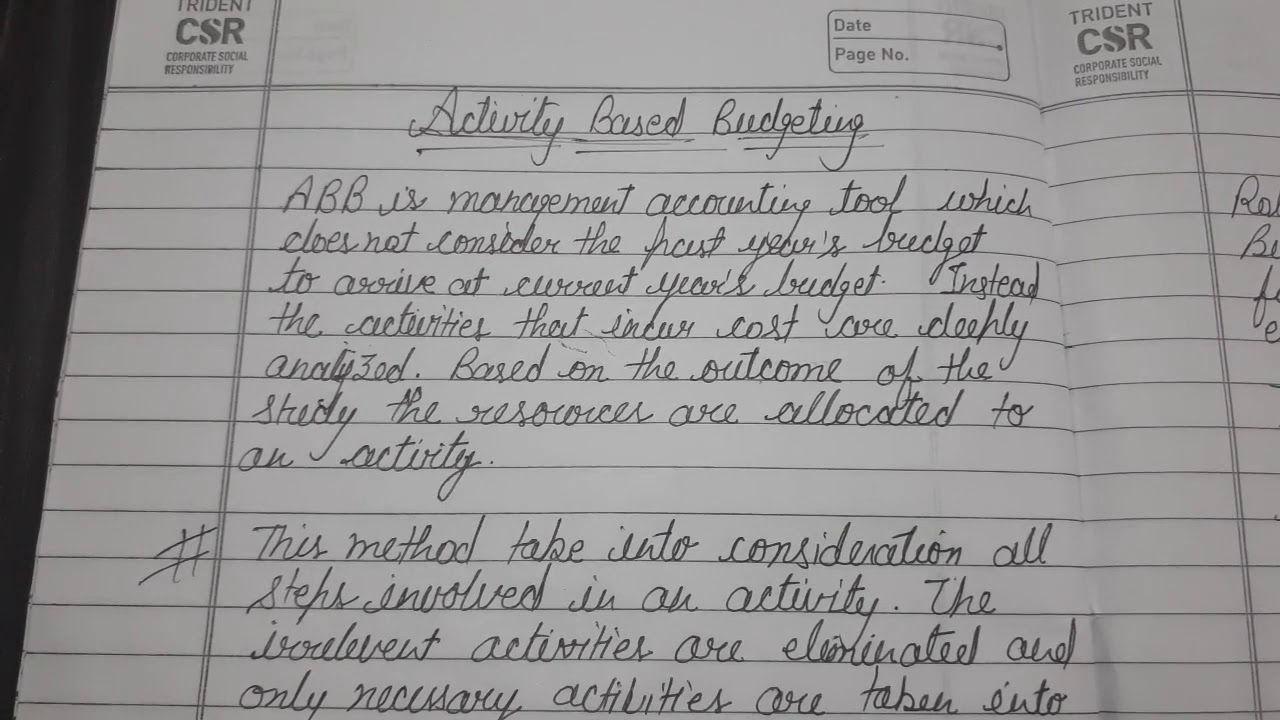 TRIDENT
CSR
CORPORATE SOCIAL
RESPONSIBILITY
Date
Page No.
TRIDENT
CSR
CORPORATE SOCIAL
RESPONSIBILITY
Activity Based Budgeting
ABB is management accounting tool which
does not consider the past year's budget
to arrive at current year's budget. Instead
the activities that incur cost are deeply
analyzed. Based on the outcome of the
study the resources are allocated to
an activity.
# This method take into consideration all
steps involved in an activity. The
irrelevent activities are eliminated and
only necessary activities are taken into